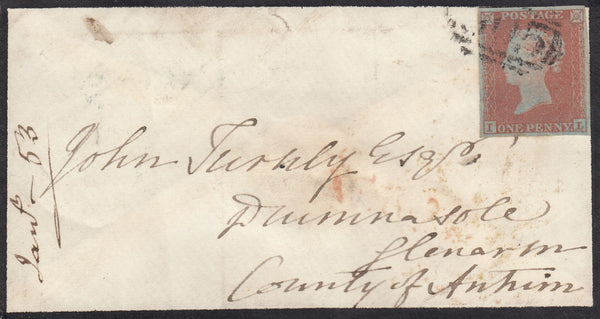 POSTAGE
I ONE PENNY L
Jany - 53
John Turkly Esqr
Drumnasole
Glenarm
County of Antrim